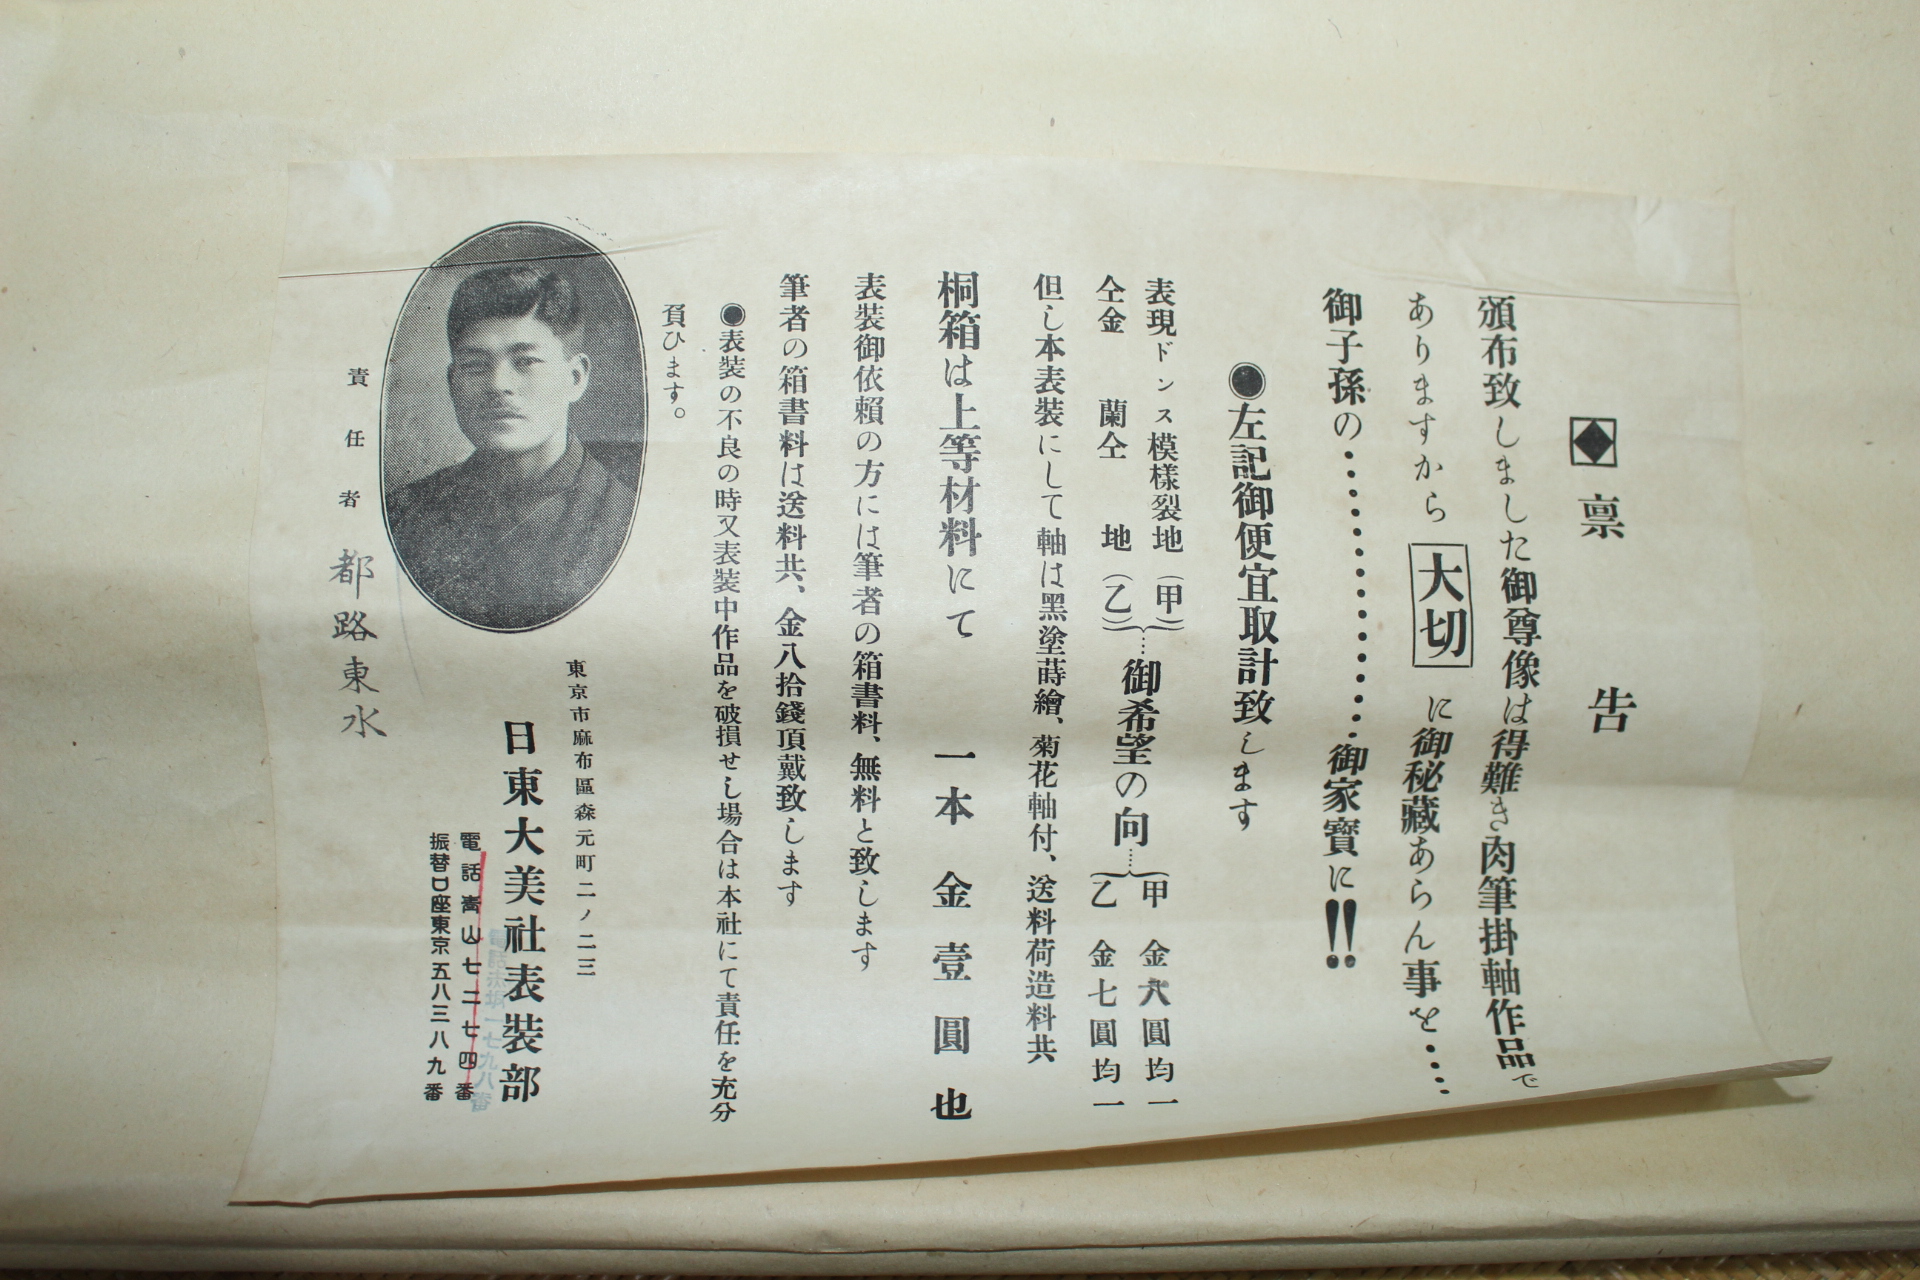 禀告
頒布致しました御尊像は得難き肉筆掛軸作品で
ありますから大切に御秘藏あらん事を‥‥
御子孫の‥‥‥‥‥‥‥‥御家寳に!!
●左記御便宜取計致します
表現ドンス模様裂地(甲)
仝金蘭仝地(乙)
御希望の向
甲金八圓均一
乙金七圓均一
但し本表装にして軸は黑塗蒔繪、菊花軸付、送料荷造料共
桐箱は上等材料にて一本金壹圓也
表装御依賴の方には筆者の箱書料、無料と致します
筆者の箱書料は送料共、金八拾錢頂戴致します
●表装の不良の時又表装中作品を破損せし場合は本社にて責任を充分
負ひます。
東京市麻布區森元町二ノ二三
日東大美社表装部
電話靑山七二七四番
電話赤坂一七九八番
振替口座東京五八三八九番
責任者都路東水